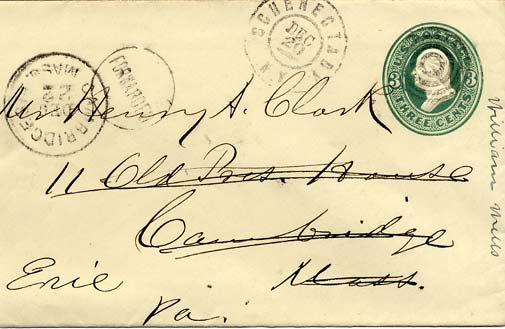 SCHENECTADY N.Y.
DEC
20
U.S. POSTAGE
3 3
THREE CENTS
FORWARDED
BRIDGE MASS.
DEC
22
Mr Henry A. Clark
11 Old Pres. House
Cambridge
Mass.
Erie
Pa.
William Mills